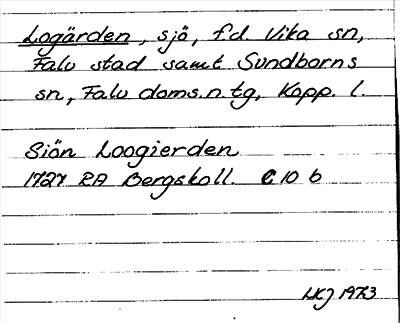 Logärden, sjö, f.d. Vika sn,
Falu stad samt Sundborns
sn, Falu doms.n.tg, Kopp. l.
Siön Loogierden
1727 RA Bergskoll. C 10 b
LKJ 1973